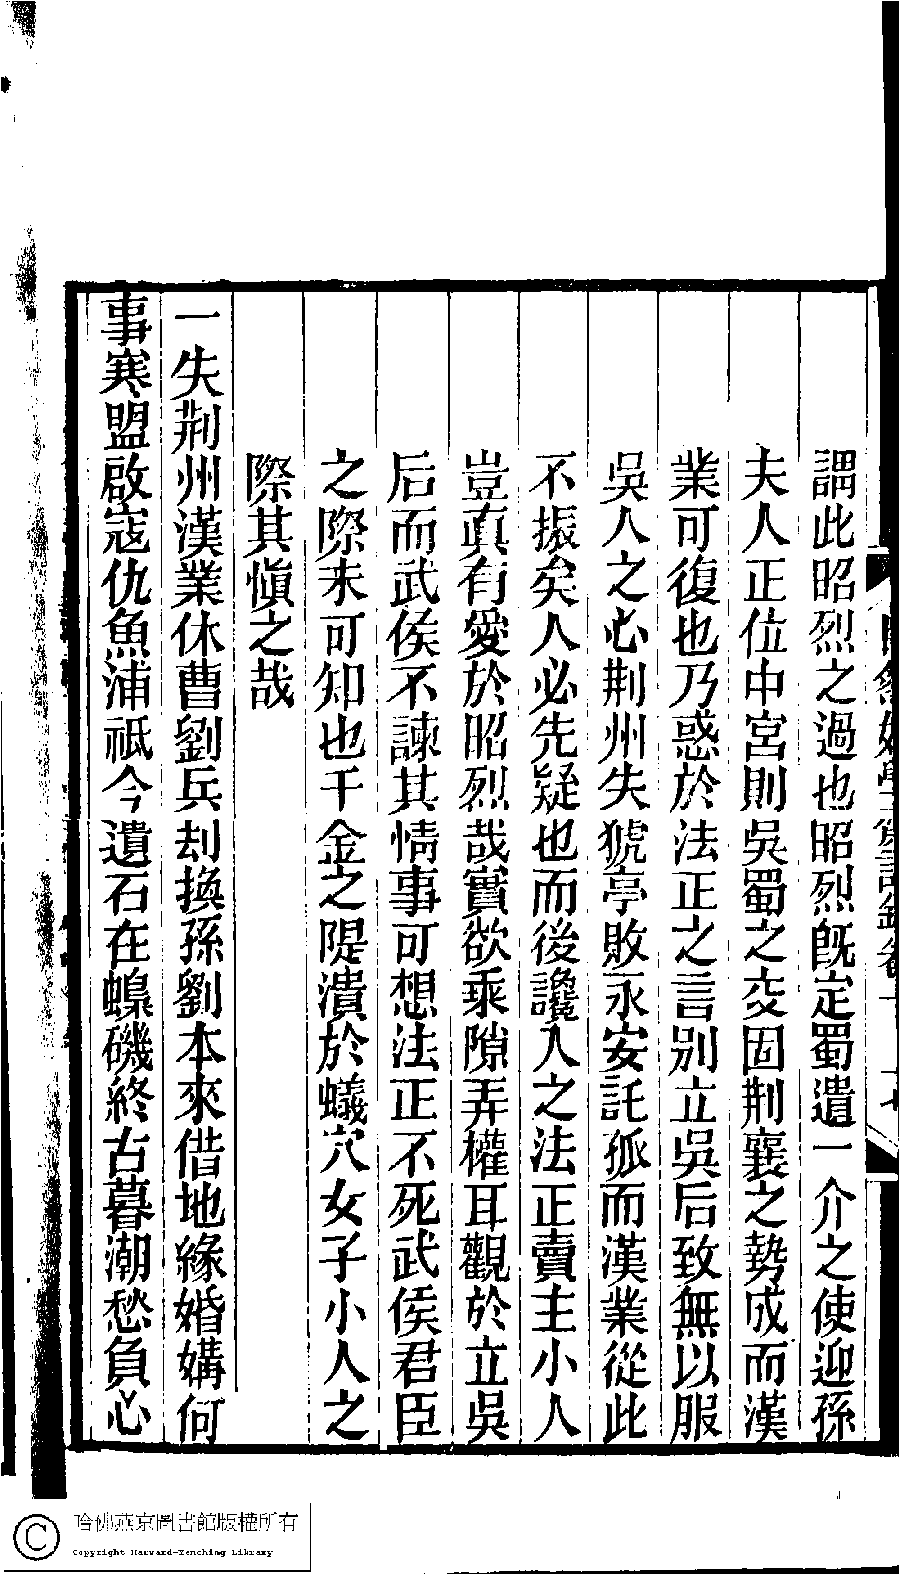 謂此昭烈之過也昭烈旣定蜀遣一介之使迎孫
夫人正位中宮則吳蜀之交固荆襄之勢成而漢
業可復也乃惑於法正之言別立吳后致無以服
吳人之心荆州失猇亭敗永安託孤而漢業從此
不振矣人必先疑也而後讒人之法正賣主小人
豈真有愛於昭烈哉實欲乘隙弄權耳觀於立吳
后而武侯不諫其情事可想法正不死武侯君臣
之際未可知也千金之隄潰於蟻穴女子小人之
際其愼之哉
一失荆州漢業休曹劉兵刦換孫劉本來借地緣婚媾何
事寒盟啟寇仇魚浦祗今遺石在蟂磯終古暮潮愁負心
哈佛燕京圖書館版權所有
Copyright Harvard-Yenching Library